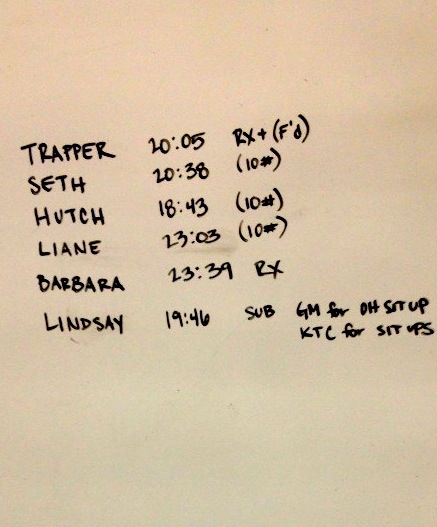 TRAPPER 20:05 RX+ (F'd)
SETH 20:38 (10#)
HUTCH 18:43 (10#)
LIANE 23:03 (10#)
BARBARA 23:39 RX
LINDSAY 19:46 SUB GM for OH SIT UP
KTC for SIT UPS